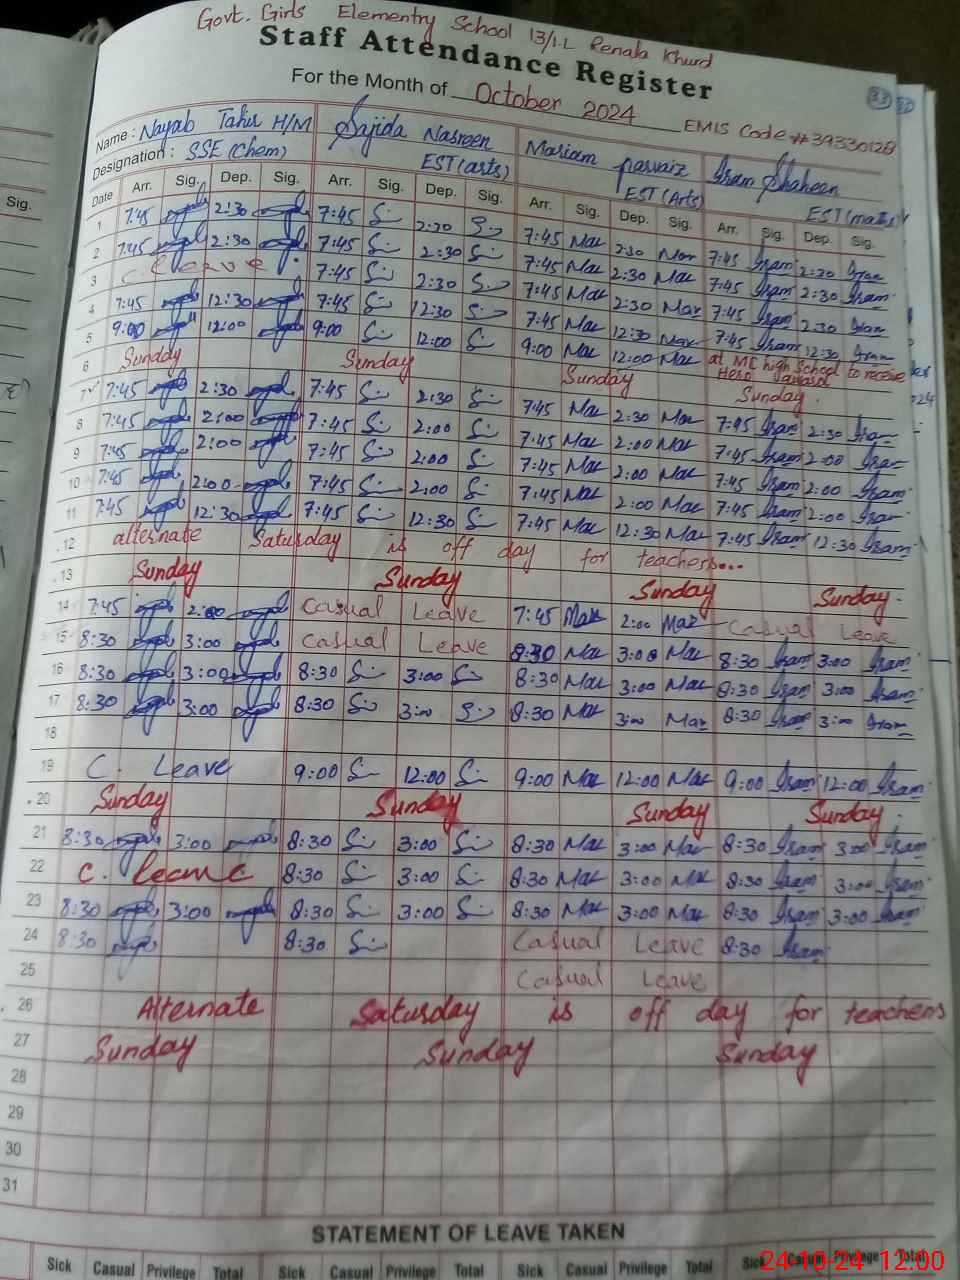 Govt. Girls Elementry School 13/1.L Renala Khurd
Staff Attendance Register
For the Month of October 2024
EMIS Code # 39330126
33
Name: Nayab Tahir H/M Sajida Nasreen Mariam parvaiz Iram Shaheen
Designation: SSE (Chem) EST (arts) EST (Arts) EST (maths)
Date Arr. Sig. Dep. Sig. Arr. Sig. Dep. Sig. Arr. Sig. Dep. Sig. Arr. Sig. Dep. Sig.
1 7:45 2:30 7:45 2:30 7:45 Mar 2:30 Mar 7:45 Iram 2:30 Iram
2 7:45 2:30 7:45 2:30 7:45 Mar 2:30 Mar 7:45 Iram 2:30 Iram
3 C. Leave 7:45 2:30 7:45 Mar 2:30 Mar 7:45 Iram 2:30 Iram
4 7:45 12:30 7:45 12:30 7:45 Mar 12:30 Mar 7:45 Iram 12:30 Iram
5 9:00 12:00 9:00 12:00 9:00 Mar 12:00 Mar at MC high School to receive Hero award
6 Sunday Sunday Sunday Sunday
7 7:45 2:30 7:45 2:30 7:45 Mar 2:30 Mar 7:45 Iram 2:30 Iram
8 7:45 2:00 7:45 2:00 7:45 Mar 2:00 Mar 7:45 Iram 2:00 Iram
9 7:45 2:00 7:45 2:00 7:45 Mar 2:00 Mar 7:45 Iram 2:00 Iram
10 7:45 2:00 7:45 2:00 7:45 Mar 2:00 Mar 7:45 Iram 2:00 Iram
11 7:45 12:30 7:45 12:30 7:45 Mar 12:30 Mar 7:45 Iram 12:30 Iram
12 alternate Saturday is off day for teachers...
13 Sunday Sunday Sunday Sunday
14 7:45 2:00 Casual Leave 7:45 Mar 2:00 Mar Casual Leave
15 8:30 3:00 Casual Leave 8:30 Mar 3:00 Mar 8:30 Iram 3:00 Iram
16 8:30 3:00 8:30 3:00 8:30 Mar 3:00 Mar 8:30 Iram 3:00 Iram
17 8:30 3:00 8:30 3:00 8:30 Mar 3:00 Mar 8:30 Iram 3:00 Iram
18
19 C. Leave 9:00 12:00 9:00 Mar 12:00 Mar 9:00 Iram 12:00 Iram
20 Sunday Sunday Sunday Sunday
21 8:30 3:00 8:30 3:00 8:30 Mar 3:00 Mar 8:30 Iram 3:00 Iram
22 C. Leave 8:30 3:00 8:30 Mar 3:00 Mar 8:30 Iram 3:00 Iram
23 8:30 3:00 8:30 3:00 8:30 Mar 3:00 Mar 8:30 Iram 3:00 Iram
24 8:30 8:30 Casual Leave 8:30 Iram
25 Casual Leave
26 Alternate Saturday is off day for teachers
27 Sunday Sunday Sunday
28
29
30
31
STATEMENT OF LEAVE TAKEN
Sick Casual Privilege Total Sick Casual Privilege Total Sick Casual Privilege Total Sick Casual Privilege Total
24-10-24 12:00
Sig.